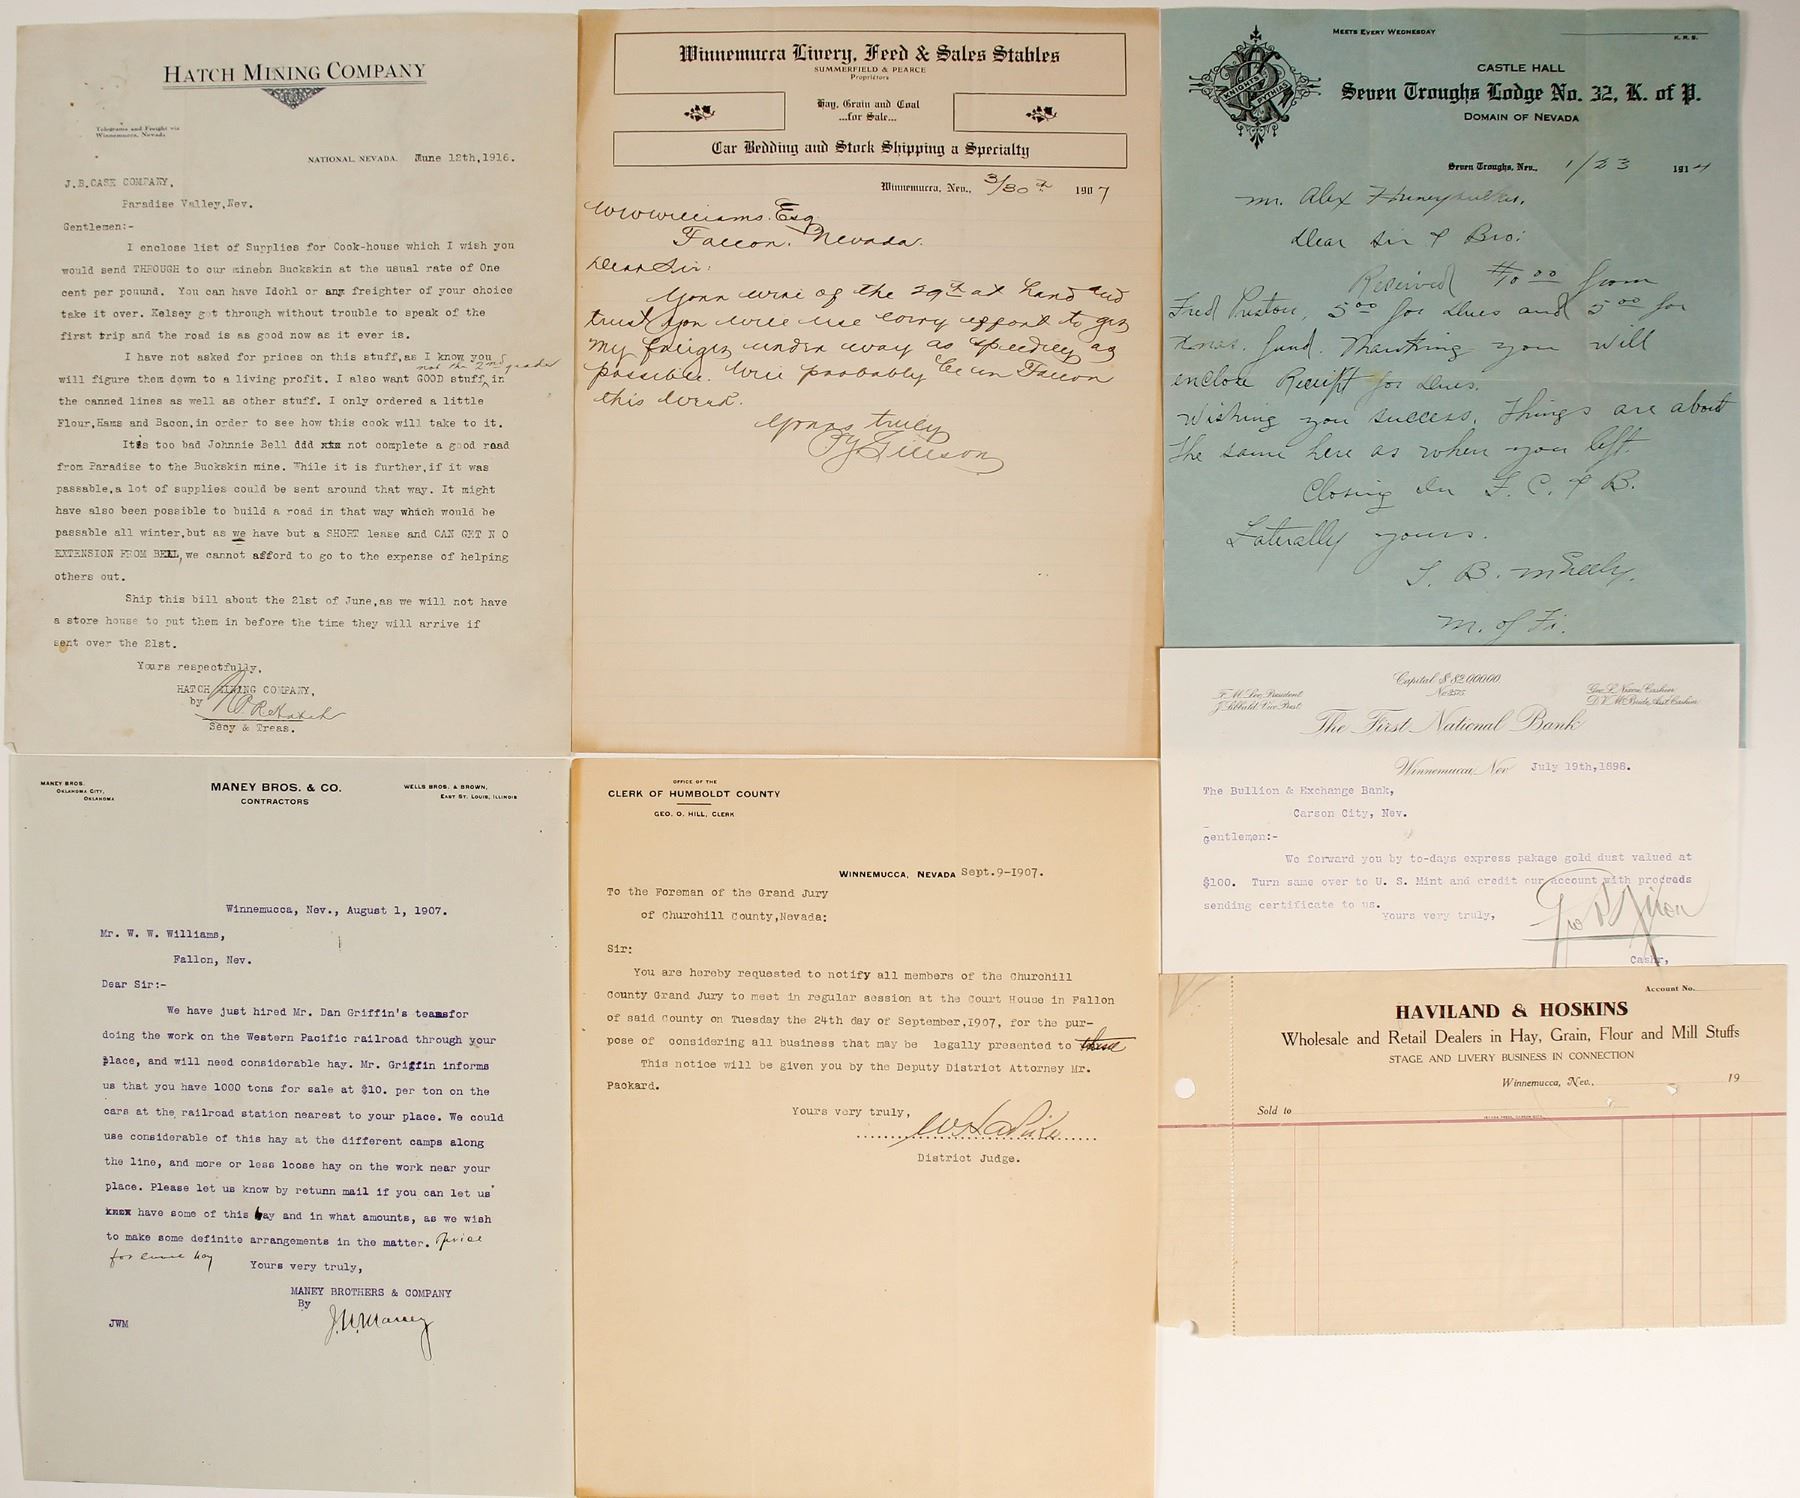 HATCH MINING COMPANY
Telegrams and Freight via
Winnemucca, Nevada
NATIONAL, NEVADA. June 12th,1916.
J.B.CASE COMPANY,
Paradise Valley,Nev.
Gentlemen:-
I enclose list of Supplies for Cook-house which I wish you
would send THROUGH to our minebn Buckskin at the usual rate of One
cent per pouund. You can have Idohl or any freighter of your choice
take it over. Kelsey got through without trouble to speak of the
first trip and the road is as good now as it ever is.
I have not asked for prices on this stuff,as I know you
not the 2nd grades
will figure them down to a living profit. I also want GOOD stuff, in
the canned lines as well as other stuff. I only ordered a little
Flour,Hams and Bacon,in order to see how this cook will take to it.
Itis too bad Johnnie Bell ddd xtx not complete a good road
from Paradise to the Buckskin mine. While it is further,if it was
passable,a lot of supplies could be sent around that way. It might
have also been possible to build a road in that way which would be
passable all winter,but as we have but a SHORT lease and CAN GET N O
EXTENSION FROM BELL,we cannot afford to go to the expense of helping
others out.
Ship this bill about the 21st of June,as we will not have
a store house to put them in before the time they will arrive if
sent over the 21st.
Yours respectfully,
HATCH MINING COMPANY,
by
Secy & Treas.
Winnemucca Livery, Feed & Sales Stables
SUMMERFIELD & PEARCE
Proprietors
Hay, Grain and Coal
...for Sale...
Car Bedding and Stock Shipping a Specialty
Winnemucca, Nev., 3/30th 1907
WWWilliams. Esq
Fallon. Nevada.
Dear Sir:
Your wire of the 29th at hand and
trust you will use every effort to get
my freight under way as speedily as
possible. Will probably be in Fallon
this week.
Yours truly
MEETS EVERY WEDNESDAY
K. R. S.
KNIGHTS PYTHIAS
CASTLE HALL
Seven Troughs Lodge No. 32, K. of P.
DOMAIN OF NEVADA
Seven Troughs, Nev., 1/23 1914
Mr. Alex
Dear Sir & Bro:
Received $10 00 from
Fred Preston, 5 00 for dues and 5 00 for
Xmas. fund. Thanking you will
enclose Receipt for dues.
Wishing you success. Things are about
the same here as when you left.
Closing in F. C. & B.
Faterally yours.
M. of Fi.
Capital $ 82,000.00.
No 3575
F. M. Lee, President
J. Sibbald, Vice Prest.
Geo. S. Nixon, Cashier
D. V. McBride, Asst Cashier
The First National Bank
Winnemucca, Nev July 19th,1898.
The Bullion & Exchange Bank,
Carson City, Nev.
Gentlemen:-
We forward you by to-days express pakage gold dust valued at
$100. Turn same over to U. S. Mint and credit our account with procceds
sending certificate to us.
Yours very truly,
Cashr,
MANEY BROS.
OKLAHOMA CITY,
OKLAHOMA
MANEY BROS. & CO.
CONTRACTORS
WELLS BROS. & BROWN,
EAST ST. LOUIS, ILLINOIS
Winnemucca, Nev., August 1, 1907.
Mr. W. W. Williams,
Fallon, Nev.
Dear Sir:-
We have just hired Mr. Dan Griffin's teamsfor
doing the work on the Western Pacific railroad through your
place, and will need considerable hay. Mr. Griffin informs
us that you have 1000 tons for sale at $10. per ton on the
cars at the railroad station nearest to your place. We could
use considerable of this hay at the different camps along
the line, and more or less loose hay on the work near your
place. Please let us know by retunn mail if you can let us
have some of this hay and in what amounts, as we wish
to make some definite arrangements in the matter. Price
for loose hay
Yours very truly,
MANEY BROTHERS & COMPANY
By
J.W.Maney
JWM
OFFICE OF THE
CLERK OF HUMBOLDT COUNTY
GEO. O. HILL, CLERK
WINNEMUCCA, NEVADA Sept.9-1907.
To the Foreman of the Grand Jury
of Churchill County,Nevada:
Sir:
You are hereby requested to notify all members of the Churchill
County Grand Jury to meet in regular session at the Court House in Fallon
of said County on Tuesday the 24th day of September,1907, for the pur-
pose of considering all business that may be legally presented to
This notice will be given you by the Deputy District Attorney Mr.
Packard.
Yours very truly,
District Judge.
Account No.
HAVILAND & HOSKINS
Wholesale and Retail Dealers in Hay, Grain, Flour and Mill Stuffs
STAGE AND LIVERY BUSINESS IN CONNECTION
Winnemucca, Nev., 19
Sold to